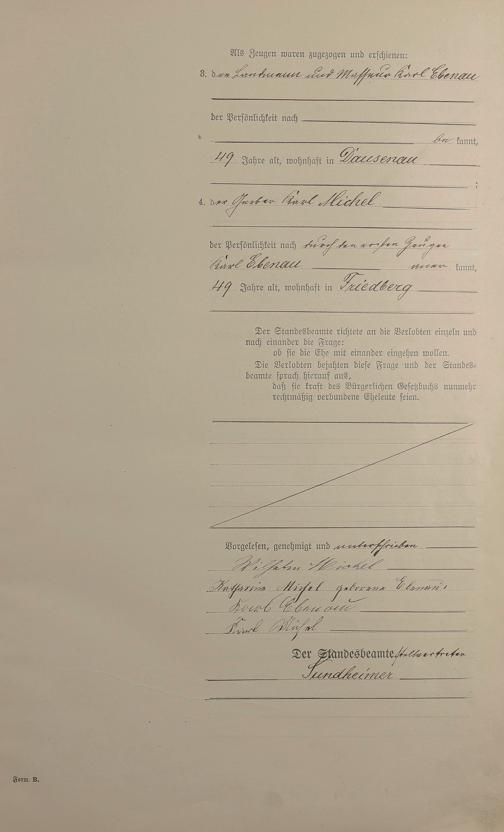 Als Zeugen waren zugezogen und erschienen:
3. der Landmann und Masseur Karl Ebenau
der Persönlichkeit nach
be kannt,
49 Jahre alt, wohnhaft in Dausenau
;
4. der Gerber Karl Michel
der Persönlichkeit nach durch den ersten Zeugen
Karl Ebenau aner kannt,
49 Jahre alt, wohnhaft in Friedberg
Der Standesbeamte richtete an die Verlobten einzeln und
nach einander die Frage:
ob sie die Ehe mit einander eingehen wollen.
Die Verlobten bejahten diese Frage und der Standes-
beamte sprach hierauf aus,
daß sie kraft des Bürgerlichen Gesetzbuchs nunmehr
rechtmäßig verbundene Eheleute seien.
Vorgelesen, genehmigt und unterschrieben
Wilhelm Michel
Katharine Michel geborene Ebenau.
Karl Ebenau
Karl Michel
Der Standesbeamte Stellvertreter
Sundheimer
Form. B.